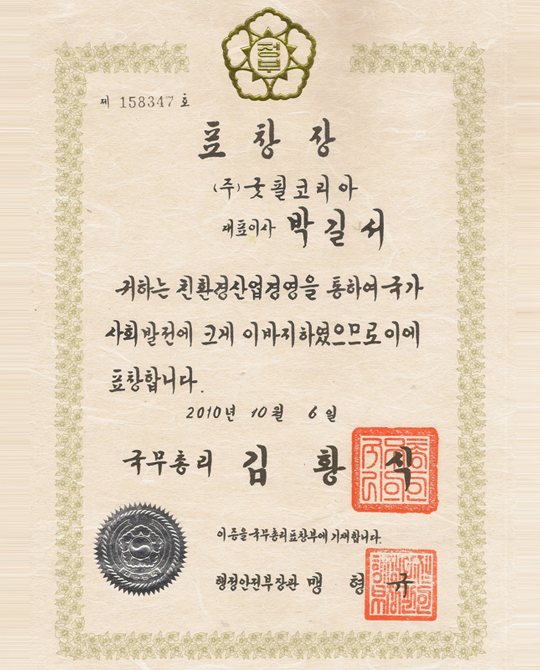 정부
제 158347 호
표창장
(주) 굿필코리아
대표이사 박길서
귀하는 친환경산업경영을 통하여 국가
사회발전에 크게 이바지하였으므로 이에
표창합니다.
2010년 10월 6일
국무총리 김황식
이 증을 국무총리표창부에 기재합니다.
행정안전부장관 맹형규